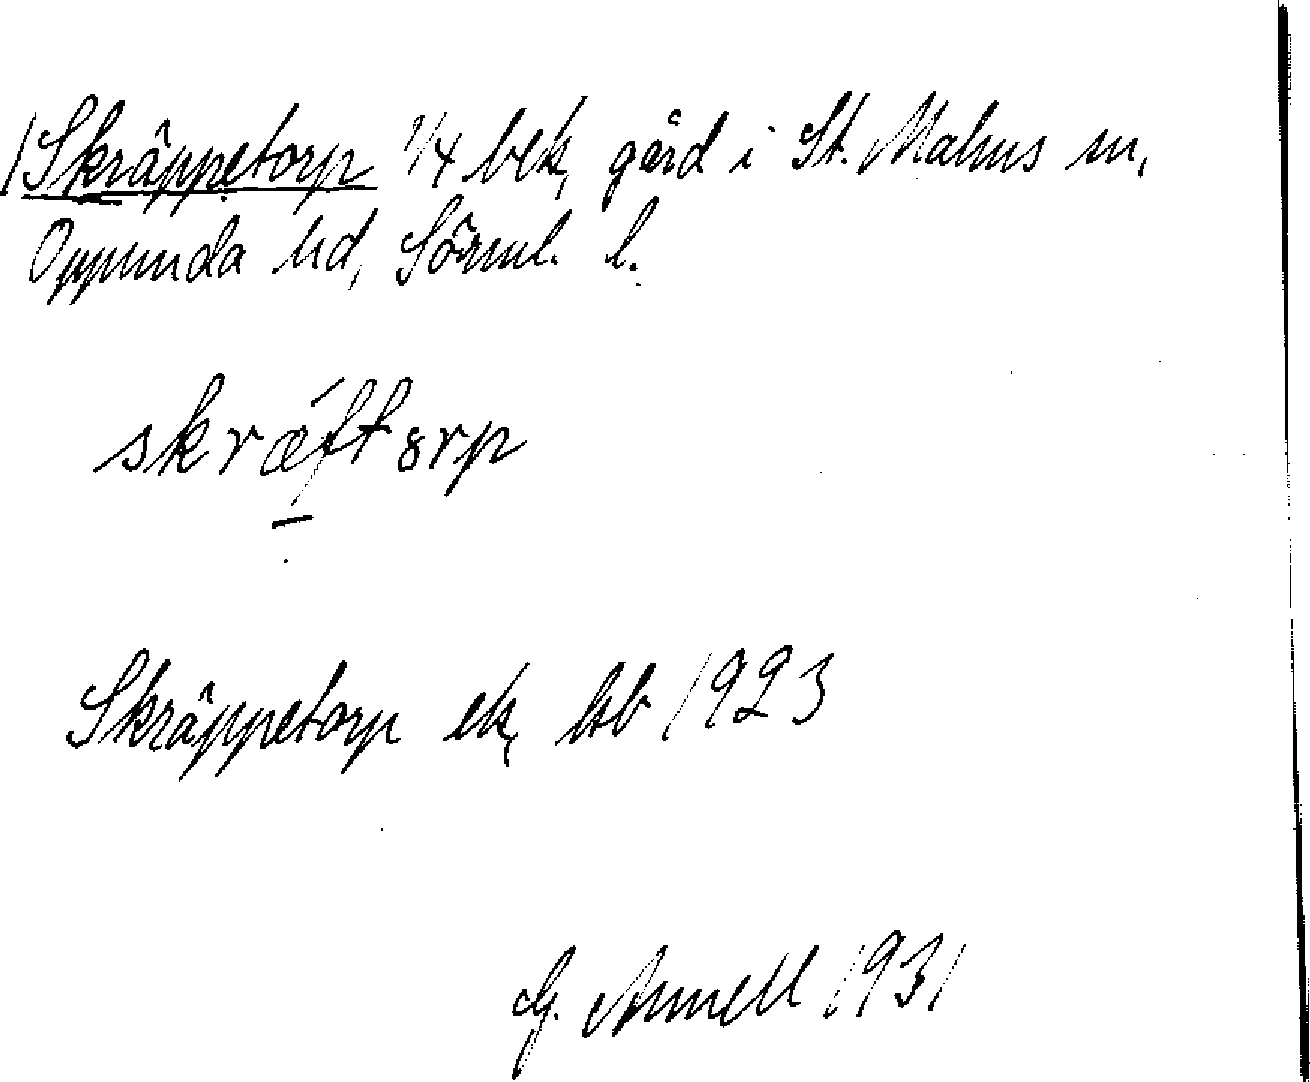 Skräppetorp 1/4 bek, gård i St. Malms sn,
Oppunda hd, Sörml. l.
skrǽ̱ftorp
Skräppetorp ek, ktb 1923
G. Annell 1931